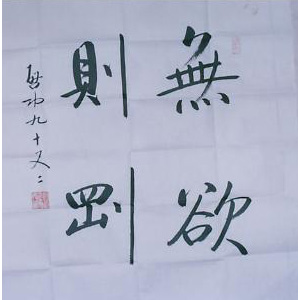 無欲
則剛
啟功九十又二